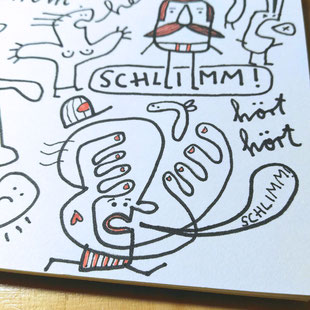 SCHLIMM!
hört
hört
SCHLIMM!